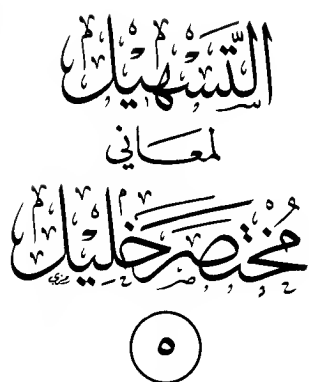 التَّسْهِيلُ
لمعاني
مُخْتَصَرِ خَلِيلٍ
٥